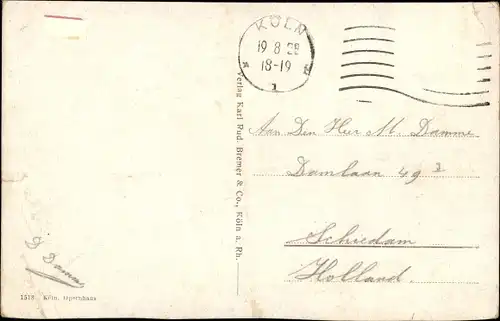 KÖLN
19 8 28
18-19
1
Verlag Karl Rud. Bremer & Co., Köln a. Rh.
Aan Den Heer M. Damme
Damlaan 49
Schiedam
Holland.
Damme
1513 Köln, Opernhaus